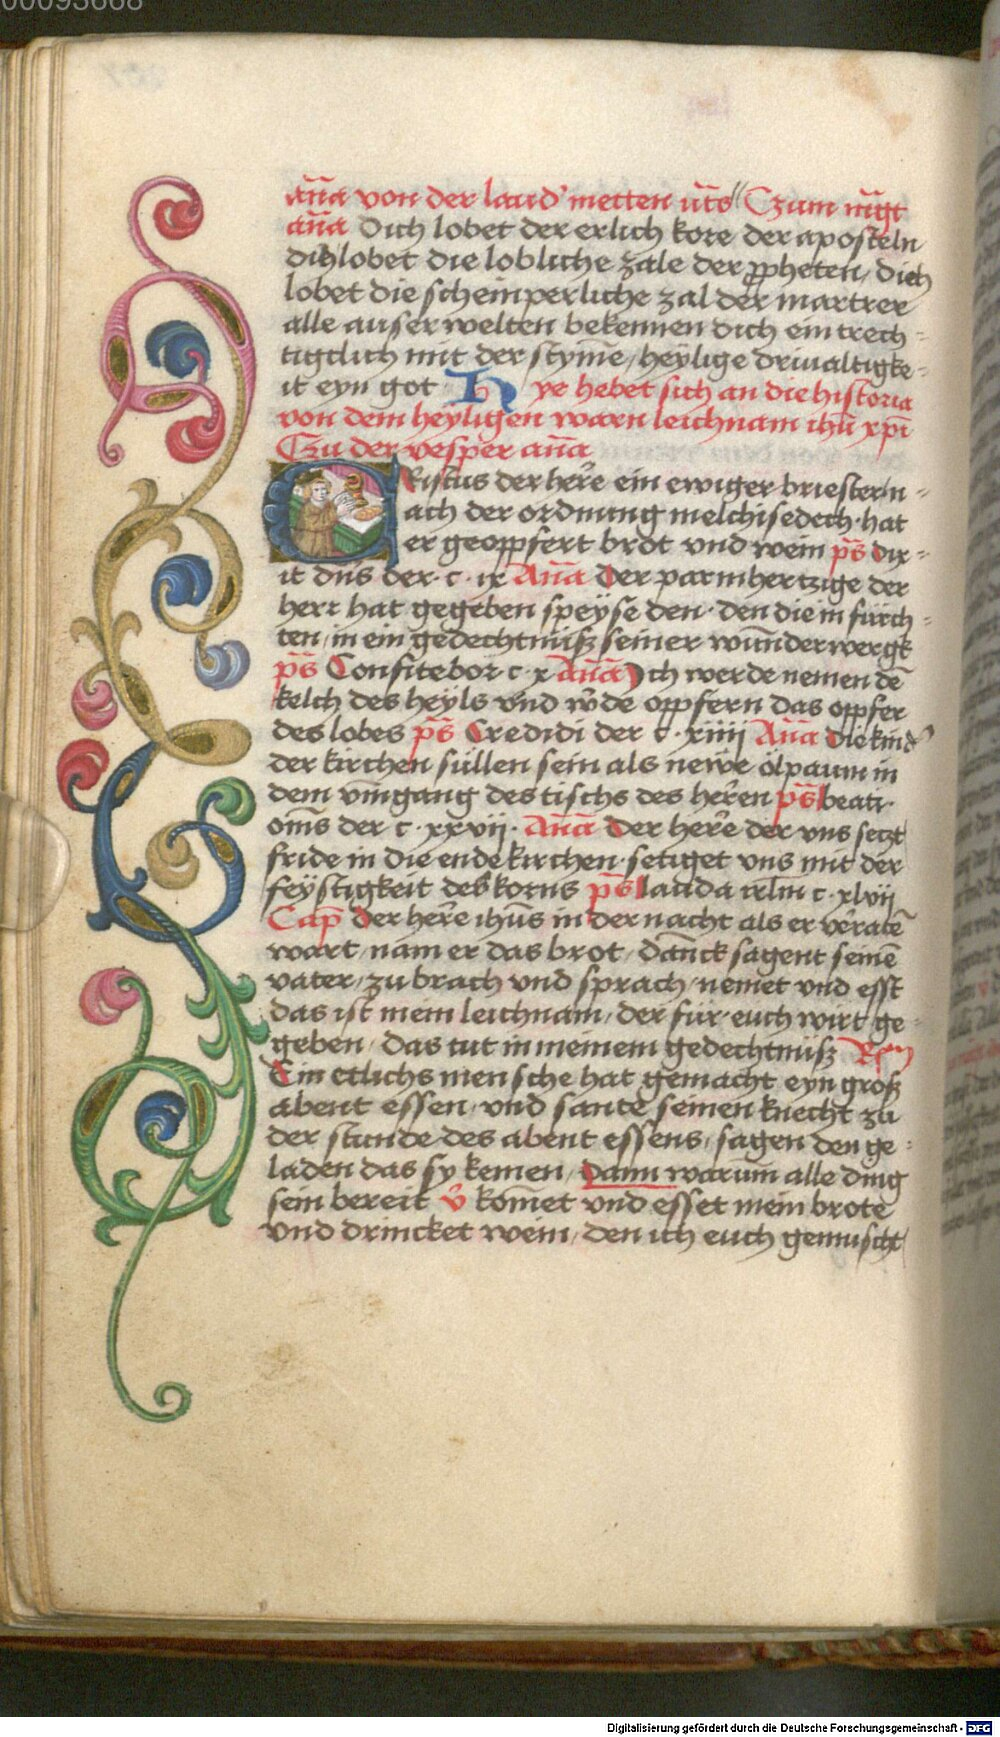 00093668
an̄a von der laud' metten ūts Czum mḡt
an̄a Dich lobet der erlich kore der aposteln
dich lobet die lobliche zale der ppheten / dich
lobet die scheinperliche zal der martrer
alle auserwelten bekennen dich eintrech-
tigclich mit der stym̄e / heylige driualtigke-
it eyn got Hye hebet sich an die historia
von dem heyligen warn leichnam ihū xpi
Czu der vesper an̄a
Cristus der herr̄e ein ewiger briester n-
ach der ordnung melchisedech · hat
er geoppfert brot vnd wein ps̄ dix-
it dn̄s der · c · ix An̄a Der parmhertzige der
herr hat gegeben speyse den · den die in fürch-
ten / in ein gedechtnuß seiner wunderwergk
ps̄ Confitebor c · x An̄a Ich werde nemen dē
kelch des heyls vnd w̄de oppfern das oppfer
des lobes ps̄ Credidi der c · xiiij An̄a Die kind'
der kirchen süllen sein als newe ölpaum in
dem vmgang des tischs des herr̄en ps̄ beati ·
om̄s der c · xxvij · An̄a Der herr̄e der vns setzt
fride in die ende kirchen · setiget vns mit der
feystigkeit des korns ps̄ lauda irl̄m c · xlvij
Cap̄ Der herr̄e ihūs in der nacht als er v̄ratē
wart / nam er das brot / danck sagent seinē
vater / zu brach vnd sprach / nemet vnd esst
das ist mein leichnam / der für euch wirt ge-
geben / das tut in meinem gedechtnüß
Ein etlichs mensche hat gemacht eyn groß
abent essen / vnd sante seinen knecht zu
der stunde des abent essens / sagen den ge-
laden das sy kemen / dann warum alle ding
sein bereit v̄ komet vnd esset mein brote
vnd drincket wein / den ich euch gemischt
Digitalisierung gefördert durch die Deutsche Forschungsgemeinschaft - DFG